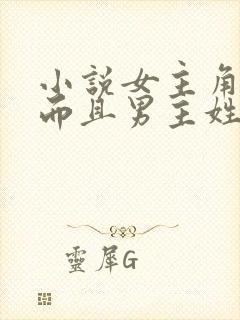 小說女主角
而且男主姓
靈犀G